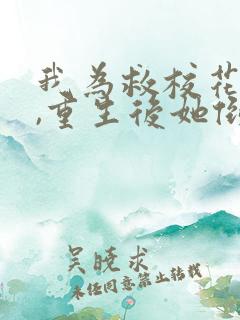 我為救校花
,重生後她
吴曉求
未经同意禁止转载